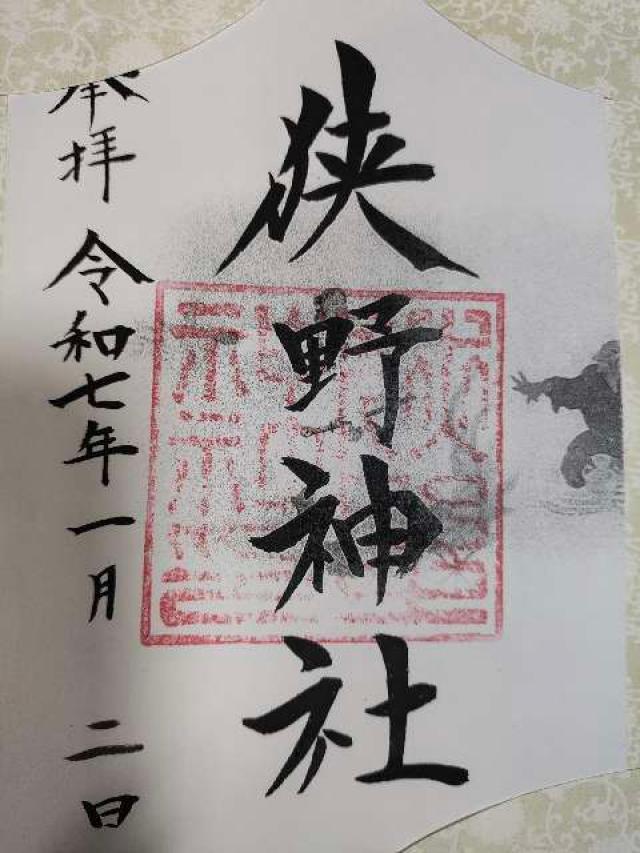 狭野神社
奉拝 令和七年一月二日